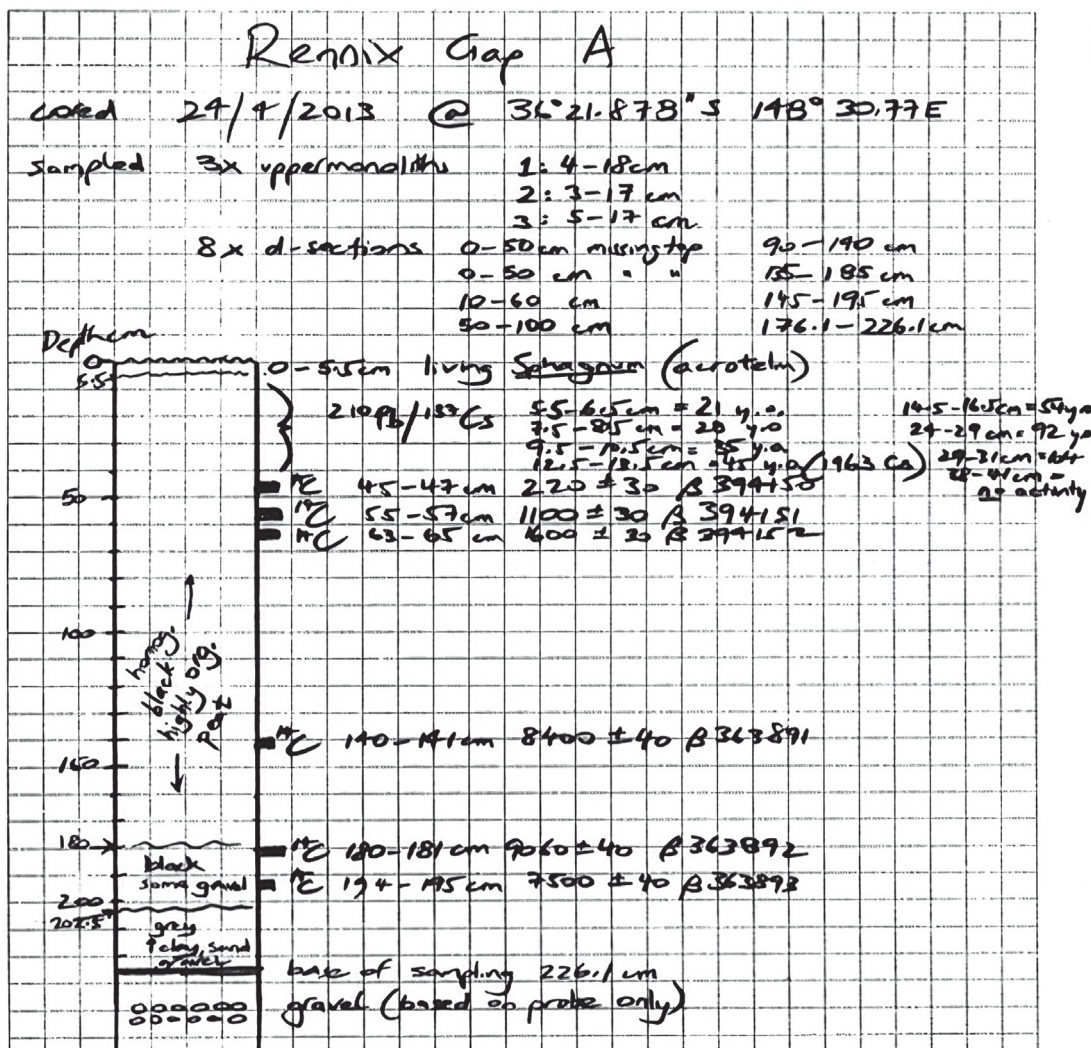 Rennix Gap A
cored 24/4/2013 @ 36°21.878"S 148°30.77E
sampled 3x upper monoliths 1: 4-18cm
2: 3-17 cm
3: 5-17 cm
8x d-sections 0-50cm missing top 90-140 cm
0-50 cm " " 135-185cm
10-60 cm 145-195cm
50-100 cm 176.1-226.1cm
Depth cm
0
5.5
0-5.5cm living Sphagnum (acrotelm)
210Pb/137Cs 5.5-6.5cm = 21 y.o.
7.5-8.5cm = 28 y.o
9.5-10.5cm = 35 y.o
12.5-13.5cm = 45 y.o (1963 Cs)
14.5-16.5cm = 54 y.o
24-29cm = 92 y.o
29-31cm =
no activity
50
14C 45-47cm 220 ± 30 β 394150
14C 55-57cm 1100 ± 30 β 394151
14C 63-65 cm 1600 ± 30 β 394152
100
homog.
black
highly org.
peat
14C 140-141cm 8400 ±40 β 363891
150
180
14C 180-181cm 9060±40 β 363892
black
some gravel
14C 194-195cm 7500 ±40 β 363893
200
202.5
grey
↑clay, sand
gravel
base of sampling 226.1 cm
gravel (based on probe only)